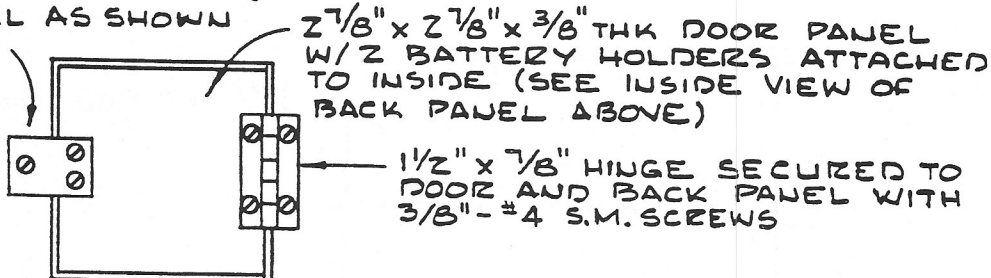 L AS SHOWN
2 7/8" x 2 7/8" x 3/8" THK DOOR PANEL
W/ 2 BATTERY HOLDERS ATTACHED
TO INSIDE (SEE INSIDE VIEW OF
BACK PANEL ABOVE)
1 1/2" x 7/8" HINGE SECURED TO
DOOR AND BACK PANEL WITH
3/8" - #4 S.M. SCREWS